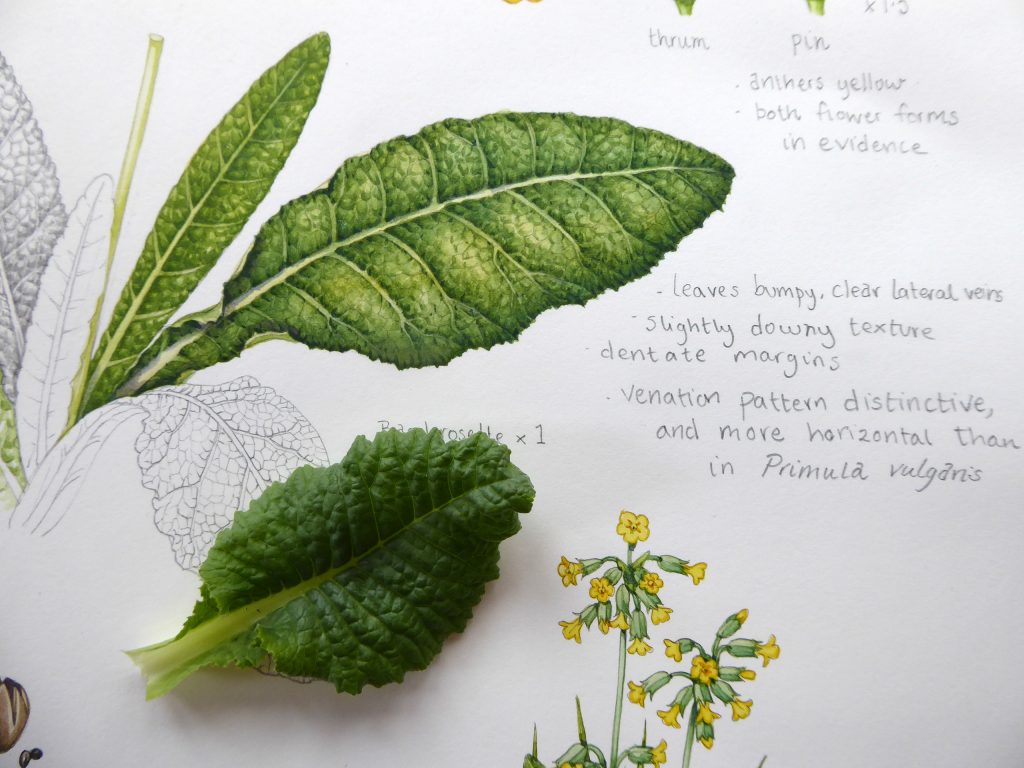 x 1·5
thrum pin
· anthers yellow
· both flower forms
in evidence
- leaves bumpy, clear lateral veins
- slightly downy texture
· dentate margins
· venation pattern distinctive,
and more horizontal than
in Primula vulgaris
rosette x 1